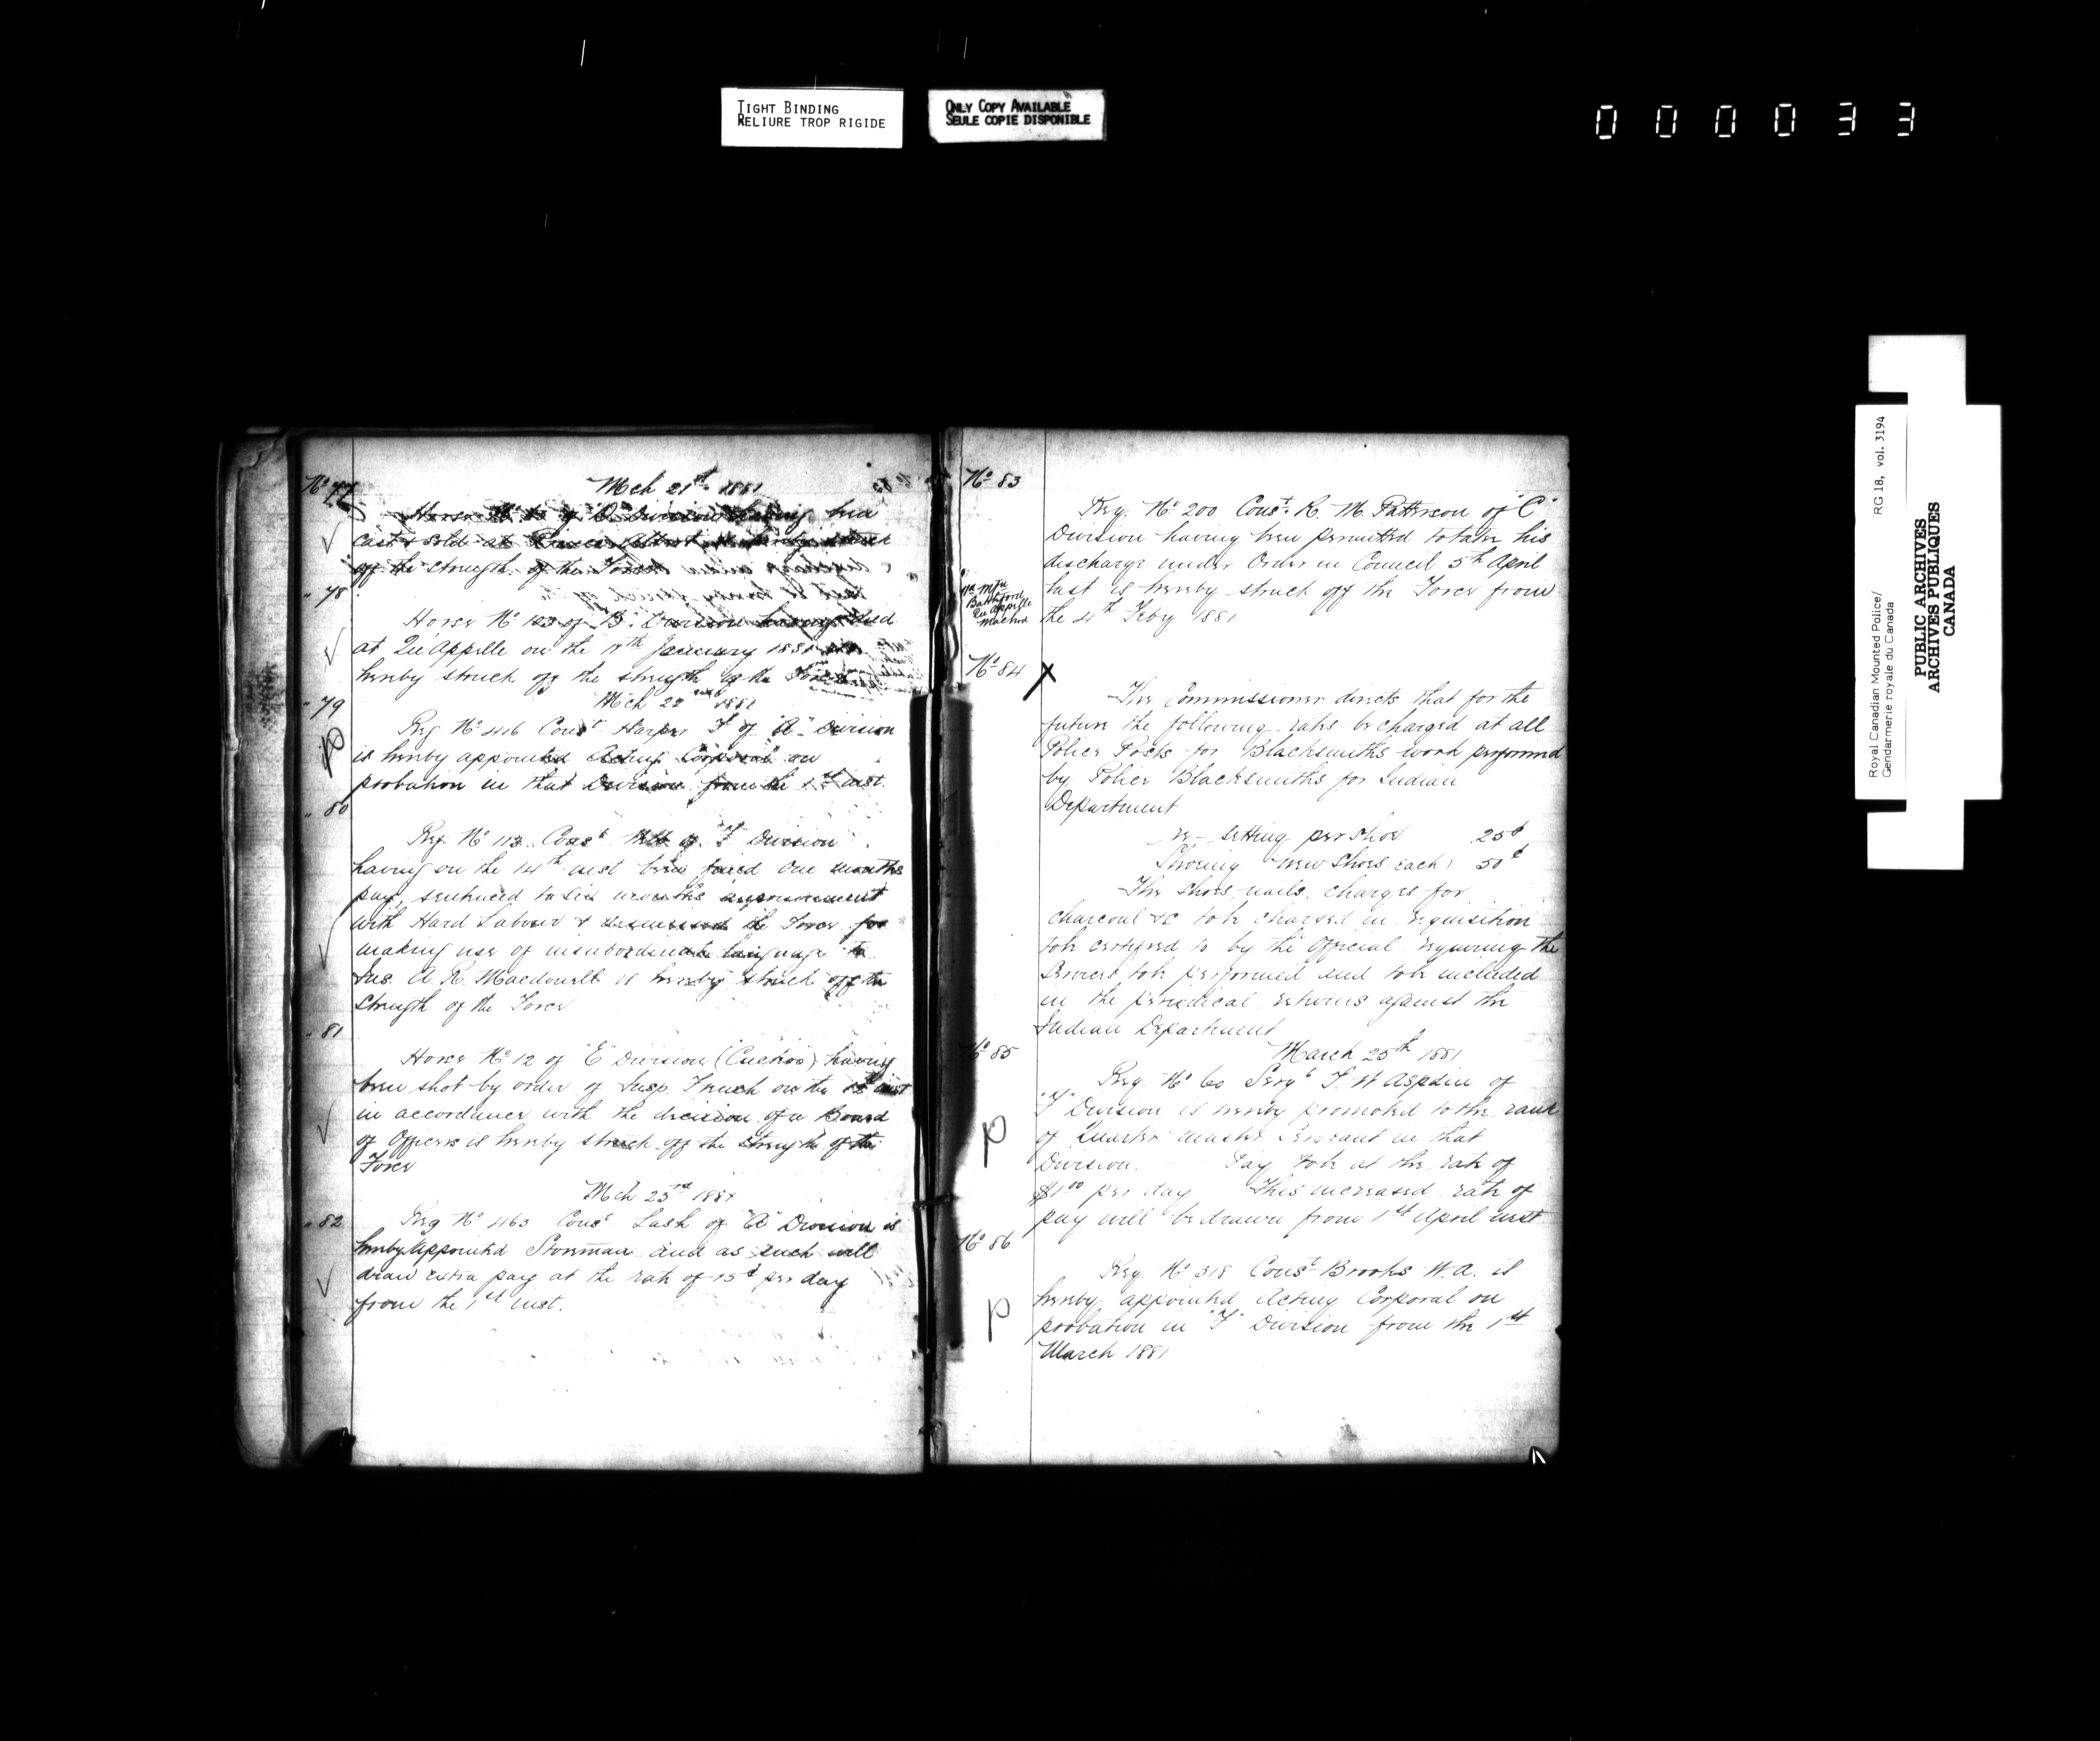 TIGHT BINDING
RELIURE TROP RIGIDE
ONLY COPY AVAILABLE
SEULE COPIE DISPONIBLE
000033
No 77
Mch 21st 1881
Horse No of "D" Division having been
cast & sold at Prince Albert is hereby struck
off the strength of the Force
" 78
Horse No 123 of "B" Division having died
at Qu'Appelle on the January 1881 is
hereby struck off the strength of the Force
Mch 22nd 1881
" 79
Reg No 416 Const Harper F of "A" Division
is hereby appointed Acting Corporal on
probation in that Division from the 1st inst.
" 80
Reg. No 113 Const of "F" Division
having on the 14th inst been fined one months
pay, sentenced to six months imprisonment
with Hard Labour & dismissed the Force for
making use of insubordinate language to
Ins. A. R. Macdonell is hereby struck off the
strength of the Force
" 81
Horse No 12 of "E" Division (Cuckoo) having
been shot by order of Insp. French on the inst
in accordance with the decision of a Board
of Officers is hereby struck off the strength of the
Force
Mch 23rd 1881
" 82
Reg No 463 Const Lash of "A" Division is
hereby appointed Storeman and as such will
draw extra pay at the rate of 15¢ per day
from the 1st inst.
No 83
Reg. No 200 Const. R. M. Patterson of "C"
Division having been permitted to take his
discharge under Order in Council 5th April
last is hereby struck off the Force from
the 4th Feby 1881
Battleford
Qu'Appelle
Macleod
No 84
The Commissioner directs that for the
future the following rates be charged at all
Police Posts for Blacksmiths work performed
by Police Blacksmiths for Indian
Department
re-setting per shoe 25¢
Shoeing (new shoes each) 50¢
The shoes, nails, charges for
charcoal &c to be charged in requisition
to be certified to by the Official requiring the
Service to be performed and to be included
in the periodical returns against the
Indian Department
No 85
March 25th 1881
Reg No 60 Sergt J. W Aspdin of
"F" Division is hereby promoted to the rank
of Quarter Master Sergeant in that
Division. Pay to be at the rate of
$1.00 per day This increased rate of
pay will be drawn from 1st April next
No 86
Reg. No 318 Const Brooks W. A. is
hereby appointed Acting Corporal on
probation in "F" Division from the 1st
March 1881
Royal Canadian Mounted Police/
Gendarmerie royale du Canada
RG 18, vol. 3194
PUBLIC ARCHIVES
ARCHIVES PUBLIQUES
CANADA